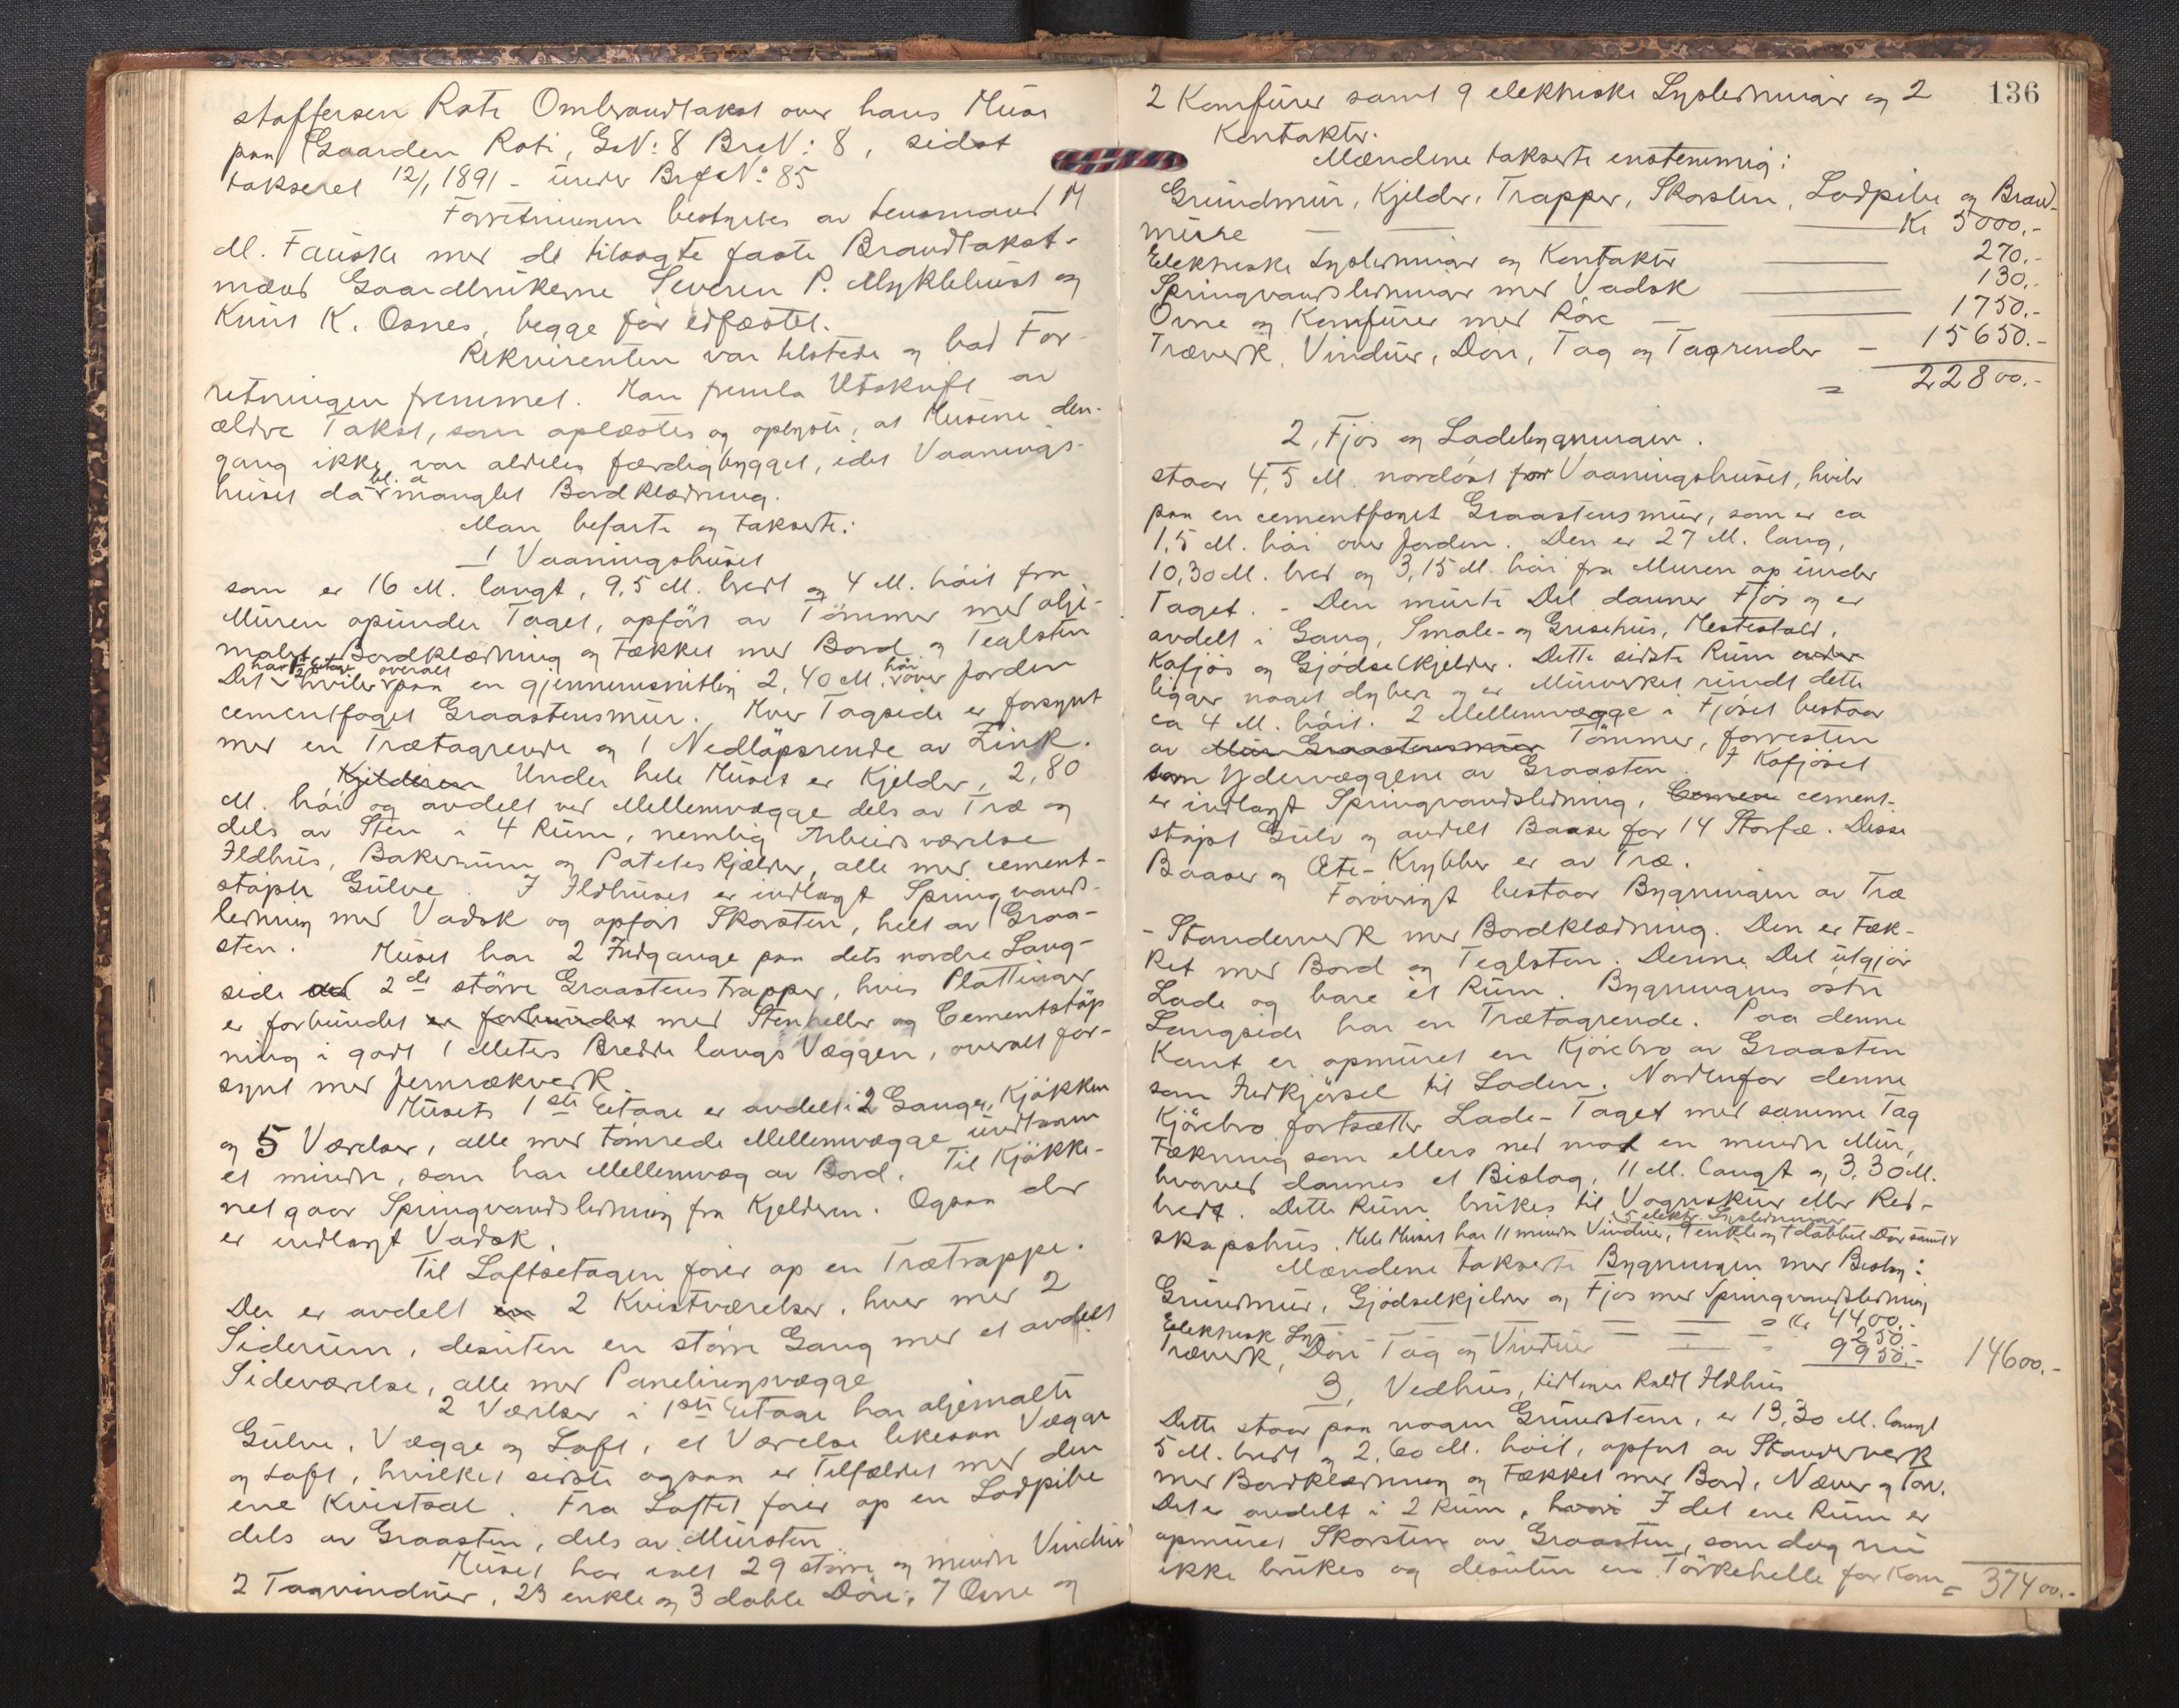 stoffersen Roti Ombrandtakst over hans Huse
paa Gaarden Roti, G.N: 8 Br.N: 8, sidst
takseret 12/1 1891 - under Brfs N: 85
Forretningen bestyrtes av Lensmand M
M. Fauska med de tilsagte faste Brandtakst-
mænd Gaardbrukerne Severin P. Myklebust og
Knut K. Osnes, begge før edfæstet.
Rekvirenten var tilstede og bad For-
retningen fremmet. Han fremla Utskrift av
ældre Takst, som oplæstes og oplyste, at Husene den-
gang ikke var aldeles færdigbygget, idet Vaanings-
huset da bl. a manglet Bordklædning.
Man befarte og takserte:
1 Vaaningshuset
som er 16 M. langt, 9,5 M. bredt og 4 M. höit fra
Muren opunder Taget, opfört av Tömmer med olje-
malet Bordklædning og tækket med Bord og Teglsten
Det har 1 1/2 Etage hviler overalt paa en gjennemsnitlig 2,40 M. höi over Jorden
cementfuget Graastensmur. Hver Tagside er forsynt
med en Trætagrende og 1 Nedlöpsrende av Zink.
Kjelderen Under hele Huset er Kjelder, 2,80
M. höi og avdelt ved Mellemvægge dels av Træ og
dels av Sten i 4 Rum, nemlig Arbeidsværelse
Ildhus, Bakerum og Poteteskjælder, alle med cement-
stöpte Gulve. I Ildhuset er indlagt Springvands-
ledning med Vadsk og opfört Skorsten, helt av Graa-
sten. Huset har 2 Indgange paa dets nordre Lang-
side ad 2de större Graastenstrapper, hvis Plattinger
er forbundet er forbundet med Stenheller og Cementstöp
ning i godt 1 Meters Bredde langs Væggen, overalt for-
synt med Jernrækverk.
Husets 1ste Etage er avdelt i 2 Gange, Kjökken
og 5 Værelser, alle med tömrede Mellemvægge undtaen
et mindre, som har Mellemvæg av Bord. Til Kjökke-
net gaar Springvandsledning fra Kjelderen. Ogsaa der
er indlagt Vadsk.
Til Loftsetagen förer op en Trætrappe.
Den er avdelt i 2 Kvistværelser, hver med 2
Siderum, desuten en större Gang med et avdelt
Sideværelse, alle med Panelingsvægge
2 Værelser i 1ste Etage har oljemalte
Gulve, Vægge og Loft, et Værelse likesaa Vægge
og Loft, hvilket sidste ogsaa er Tilfældet med den
ene Kvistsal. Fra Loftet förer op en Lodpibe
dels av Graasten, dels av Mursten
Huset har ialt 29 större og mindre Vinduer
2 Tagvinduer, 23 enkle og 3 doble Döre, 7 Ovne og
136
2 Komfurer samt 9 elektriske Lysledninger og 2
Kontakter.
Mændene takserte enstemmig:
Grundmur, Kjelder, Trapper, Skorsten, Lodpibe og Brand-
mure Kr 5000,-
Elektriske Lysledninger og Kontakter 270,-
Springvandsledninger med Vadsk 130,-
Ovne og Komfurer med Rör 1750,-
Træverk, Vinduer, Döre, Tag og Tagrender - 15650.-
= 22800.-
2, Fjös og Ladebygningen.
staar 4,5 M. nordöst for Vaaningshuset, hviler
paa en cementfuget Graastensmur, som er ca
1,5 M. höi over Jorden. Den er 27 M. lang,
10,30 M. bred og 3,15 M. höi fra Muren op under
Taget. - Den murte Del danner Fjös og er
avdelt i Gang, Smale- og Grisehus, Hestestald,
Kofjös og Gjödselkjelder. Dette sidste Rum
ligger noget dybere og er Murverket rundt dette
ca 4 M. höit. 2 Mellemvægge i Fjöset bestaar
av Graastensmur Tömmer, forresten
som Ydervæggene av Graasten. I Kofjöset
er indlagt Springvandsledning, Cemen cement-
stöpt Gulv og avdelt Baase for 14 Storfæ. Disse
Baaser og Æte-Krybber er av Træ.
Forövrigt bestaar Bygningen av Træ
- Standerverk med Bordklædning. Den er tæk-
ket med Bord og Teglsten. Denne Del utgjör
Lade og bare et Rum. Bygningens östre
Langside har en Trætagrende. Paa denne
Kant er opmuret en Kjörebro av Graasten
som Indkjörsel til Laden. Nordenfor denne
Kjörebro fortsætter Lade-Taget med samme Tag
tækning som ellers ned mod en mindre Mur,
hvorved dannes et Bislag, 11 M. langt og 3,30 M.
bredt. Dette Rum brukes til Vognskur eller Red-
5 elektr. Lysledninger
skapshus. Hele Huset har 11 mindre Vinduer, 7 enkle og 1 dobbel Dör samt
Mændene takserte Bygningen med Bislag:
Grundmur, Gjödselkjelder og Fjös med Springvandsledning
= Kr 4400.-
Elektrisk Lys 250.-
Træverk, Döre Tag og Vinduer 9950.- 14600.-
3, Vedhus, tidligere kaldt Ildhus
Dette staar paa nogen Grundstene, er 13,30 M. langt
5 M. bredt og 2,60 M. höit, opfört av Standerverk
med Bordklædning og tækket med Bord, Næver og Torv.
Det er avdelt i 2 Rum, hvori I det ene Rum er
opmuret Skorsten av Graasten, som dog nu
ikke brukes og desuten en Törkehelle for Korn
= 37400.-